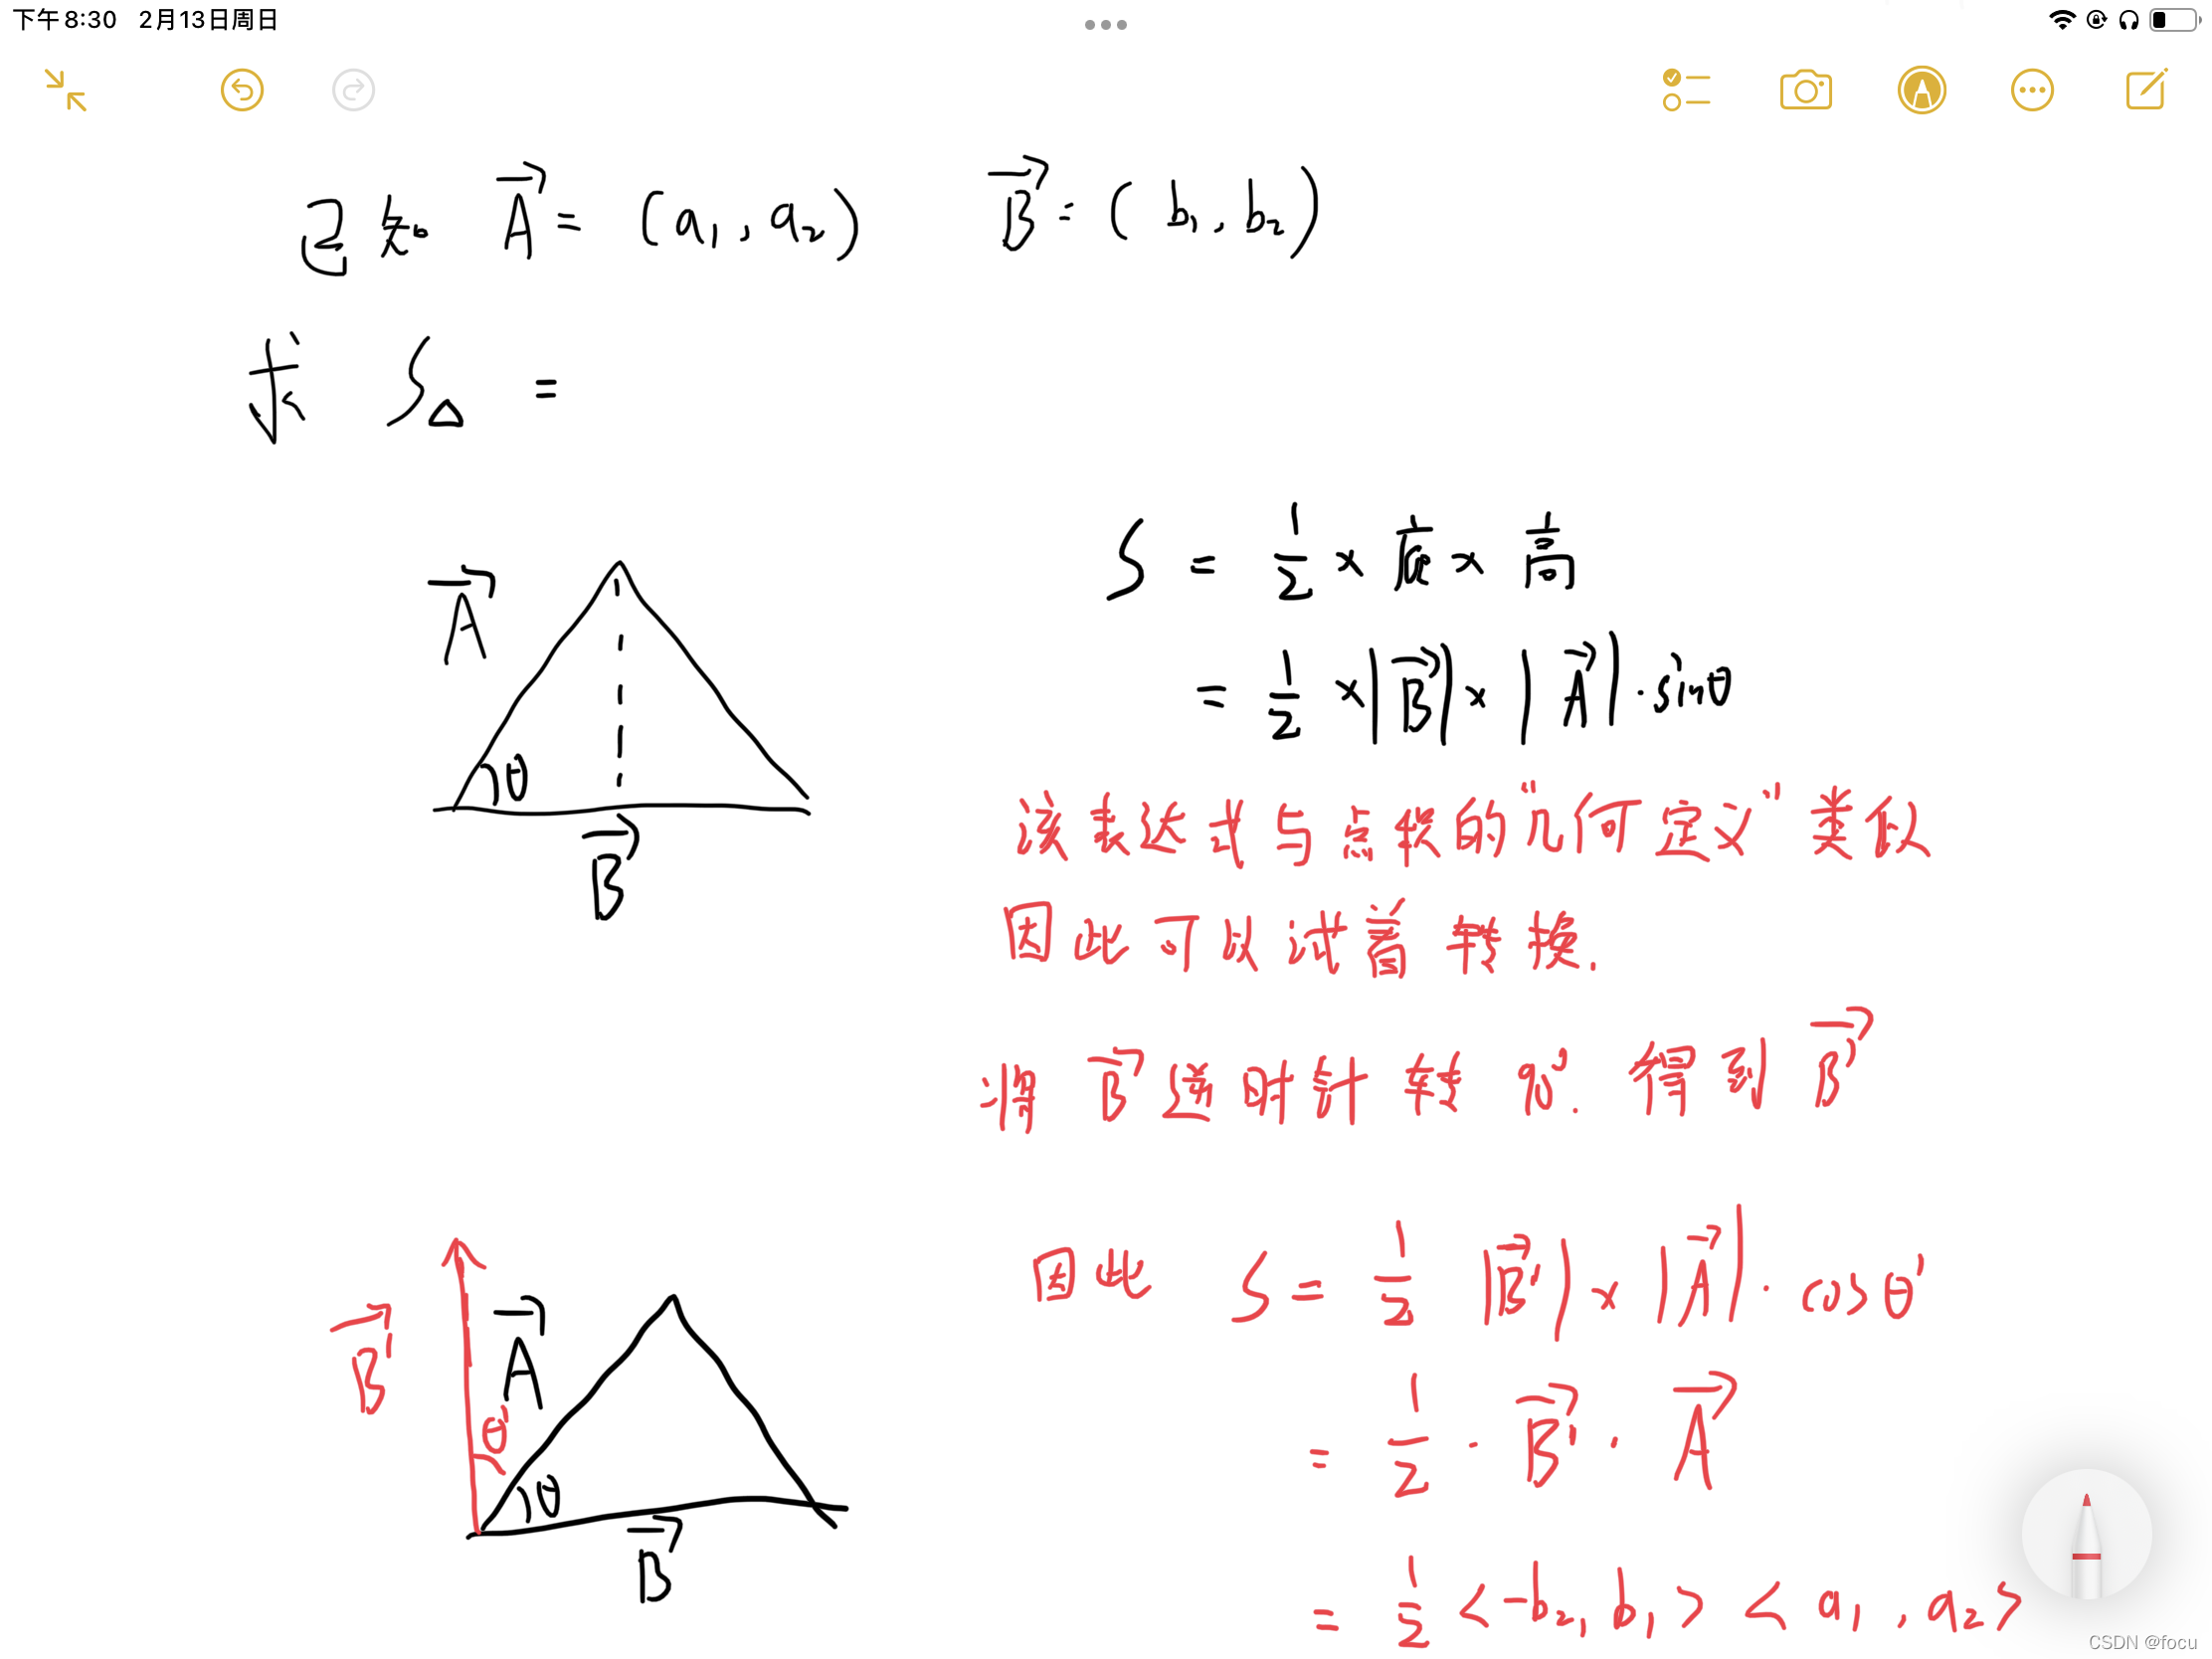 下午8:30 2月13日周日
已知 A⃗ = (a₁, a₂) B⃗ = (b₁, b₂)
求 S△ =
S = 1/2 × 底 × 高
A⃗
= 1/2 × |B⃗| × |A⃗| · sinθ
θ
B⃗
该表达式与点积的"几何定义"类似
因此可以试着转换.
将 B⃗ 逆时针转 90°. 得到 B⃗'
因此 S = 1/2 |B⃗'| × |A⃗| · cosθ'
B⃗'
A⃗
θ'
θ
B⃗
= 1/2 · B⃗' · A⃗
= 1/2 <-b₂, b₁> <a₁, a₂>
CSDN @focu